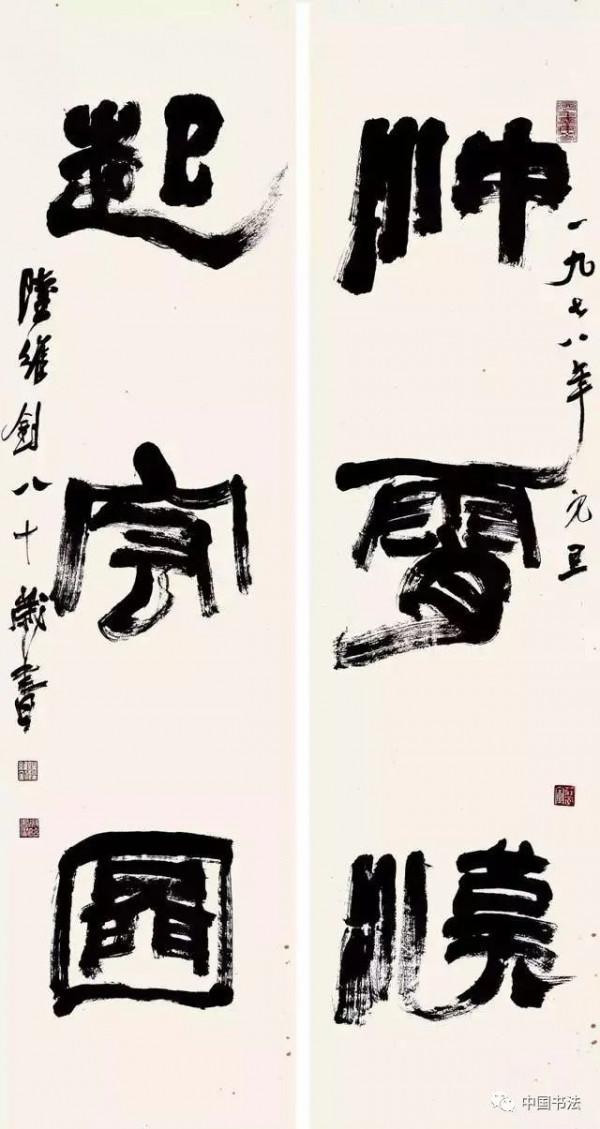 沖霄漢
一九七八年元旦
起宏圖
陸維釗八十歲書
中国书法